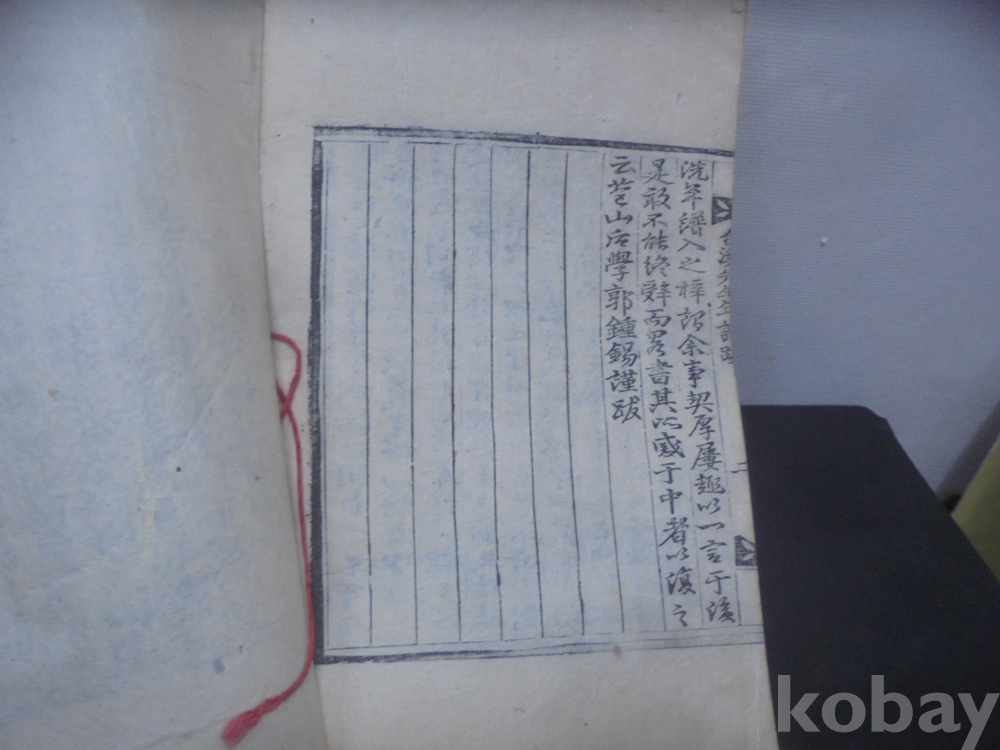 洗年譜入之梓謂余事契厚屢趣以一言于後
是敢不能終辭而畧書其所感于中者以復之
云苞山后學郭鍾錫謹跋
先生年譜跋
二
kobay